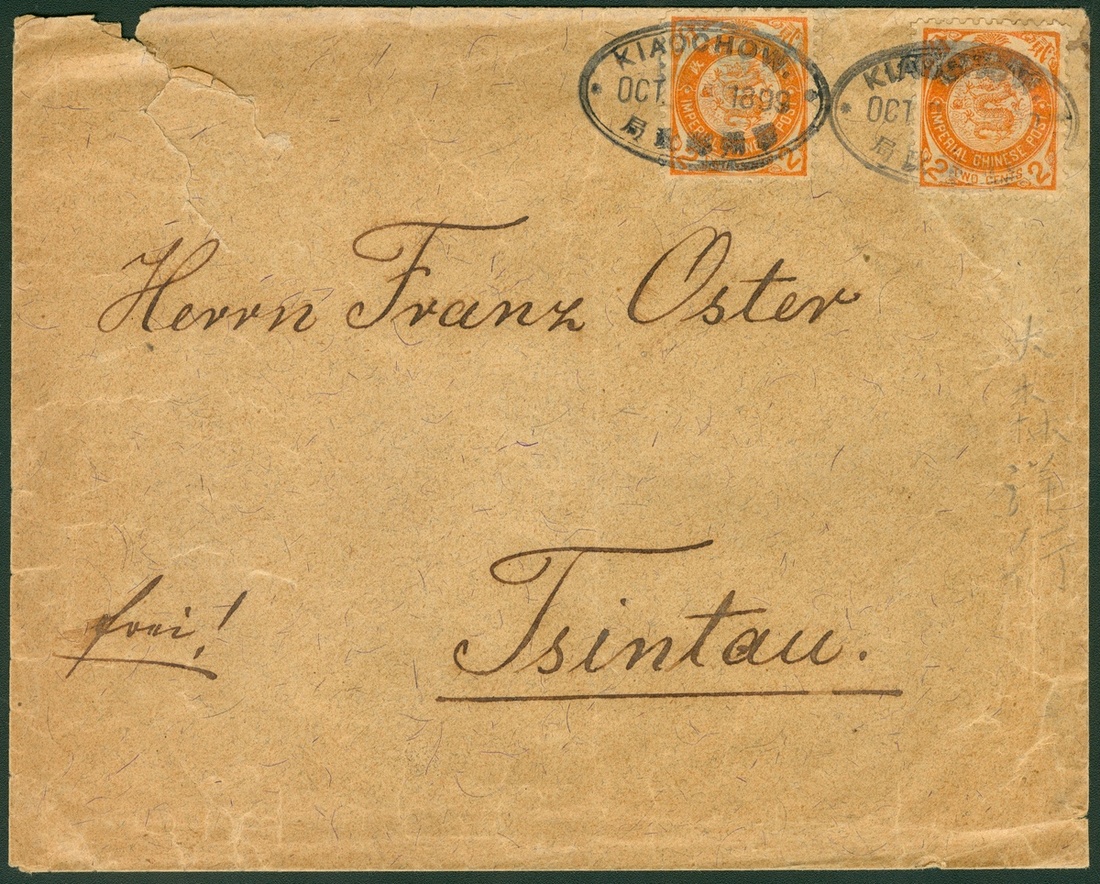 KIAOCHOW.
OCT. 1899
局
IMPERIAL CHINESE POST
2
OCT
局
IMPERIAL CHINESE POST
2 TWO CENTS 2
Herrn Franz Oster
frei!
Tsintau.